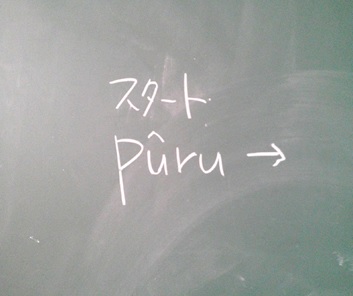 スタート
pûru →